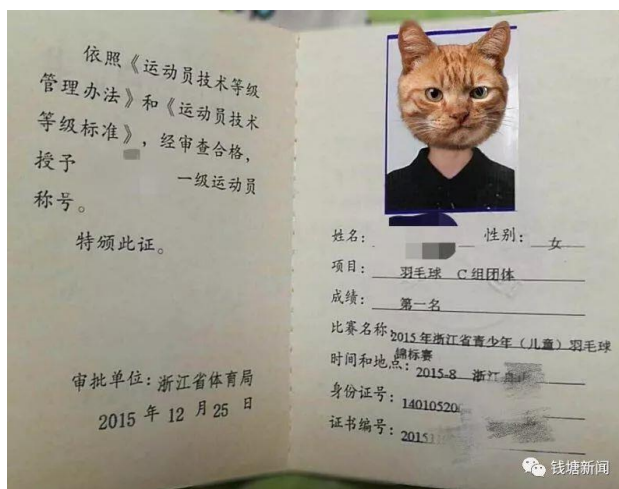 依照《运动员技术等级
管理办法》和《运动员技术
等级标准》，经审查合格，
授予 一级运动员
称号。
特颁此证。
审批单位：浙江省体育局
2015 年 12 月 25 日
姓名： 性别： 女
项目： 羽毛球 C组团体
成绩： 第一名
比赛名称：2015年浙江省青少年（儿童）羽毛球
锦标赛
时间和地点：2015-8 浙江
身份证号：14010520
证书编号：2015
钱塘新闻